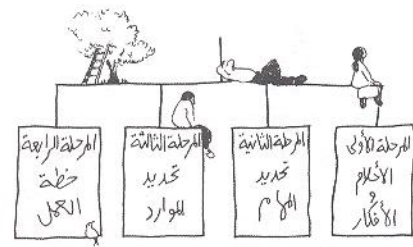 المرحلة الأولى
الأحلام
و
الأفكار
المرحلة الثانية
تحديد
المهام
المرحلة الثالثة
تحديد
الموارد
المرحلة الرابعة
خطة
العمل